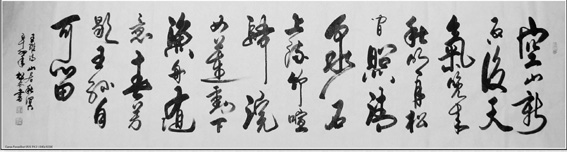 空山新
雨後天
氣晚來
秋明月松
間照清
泉石
上流竹喧
歸浣
女蓮動下
漁舟隨
意春芳
歇王孫自
可留
王維詩山居秋暝